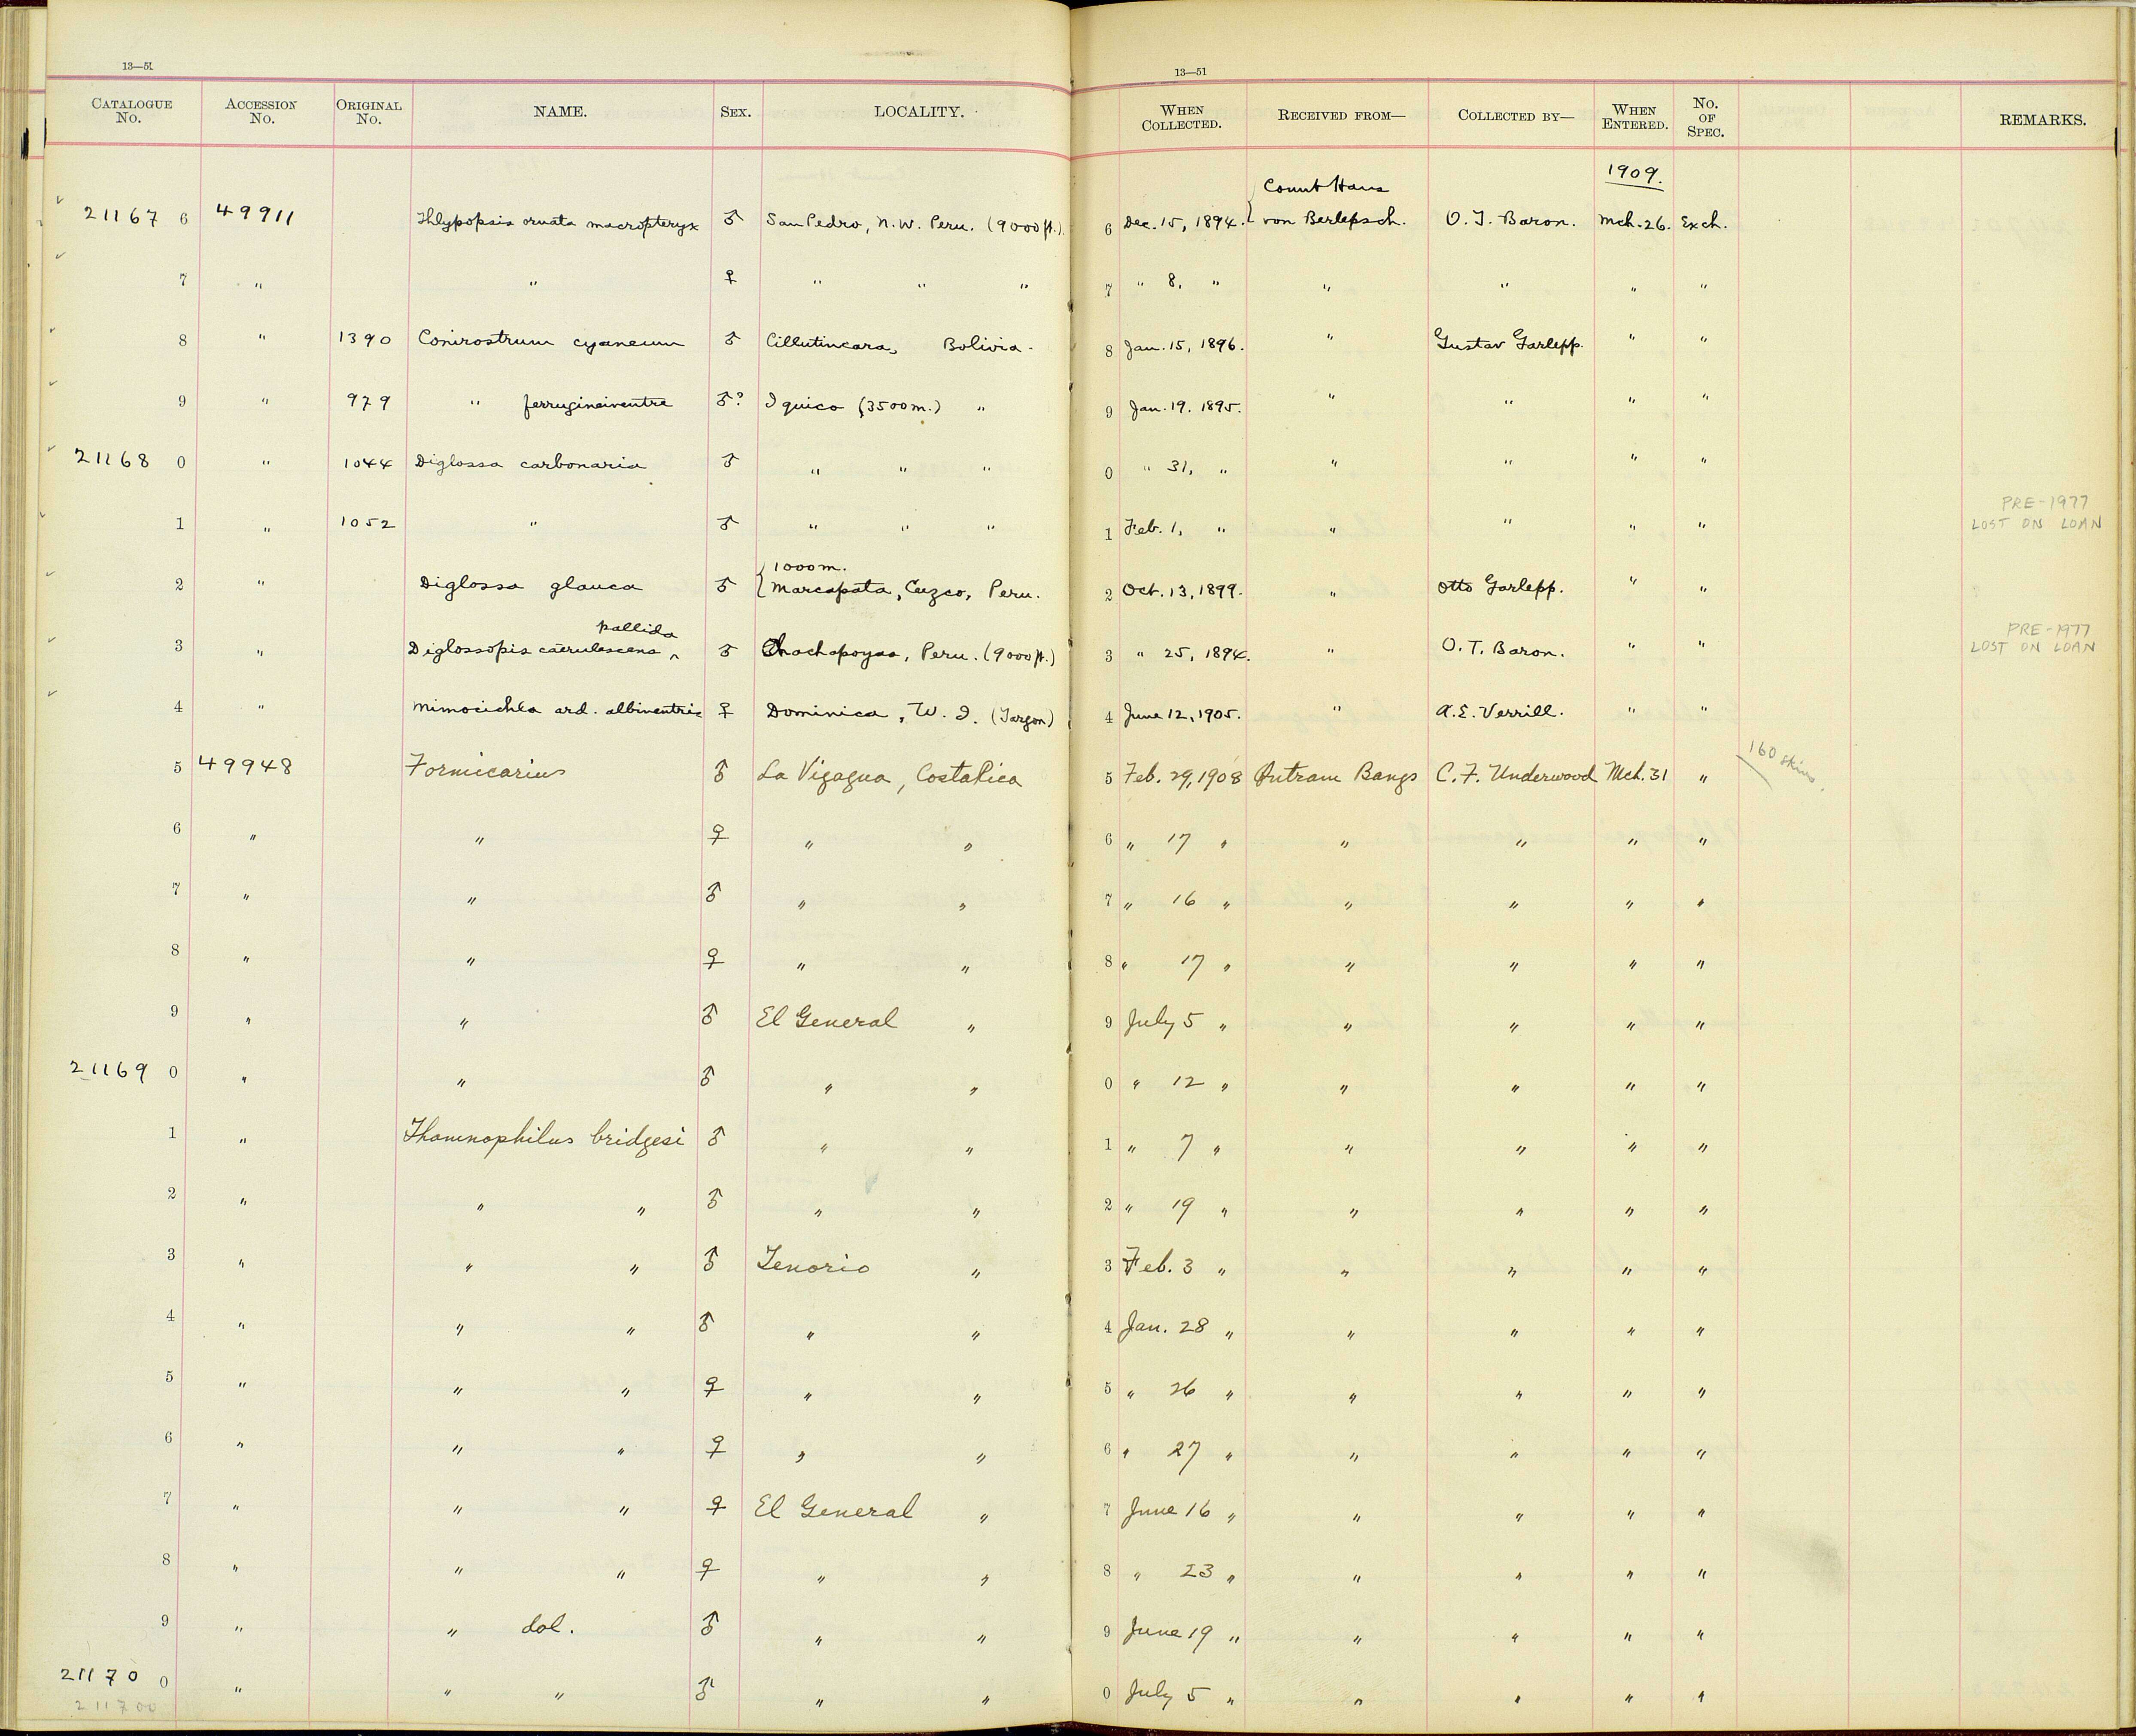 13—51 13—51
CATALOGUE No. ACCESSION No. ORIGINAL No. NAME. SEX. LOCALITY. WHEN COLLECTED. RECEIVED FROM— COLLECTED BY— WHEN ENTERED. No. OF SPEC. REMARKS.
1909.
Count Hans
21167 6 49911 Thlypopsis ornata macropteryx ♂ San Pedro, N.W. Peru. (9000 ft.) 6 Dec. 15, 1894. von Berlepsch. O. T. Baron. Mch. 26. Exch.
7 " " ♀ " " " 7 " 8, " " " " "
8 " 1390 Conirostrum cyaneum ♂ Cillutincara, Bolivia. 8 Jan. 15, 1896. " Gustav Garlepp. " "
9 " 979 " ferrugineiventre ♂? Iquico (3500 m.) " 9 Jan. 19. 1895. " " " "
21168 0 " 1044 Diglossa carbonaria ♂ " " " 0 " 31, " " " " "
PRE-1977
1 " 1052 " ♂ " " " 1 Feb. 1, " " " " " LOST ON LOAN
1000 m.
2 " Diglossa glauca ♂ Marcapata, Cuzco, Peru. 2 Oct. 13, 1899. " Otto Garlepp. " "
pallida PRE-1977
3 " Diglossopis caerulescens ‸ ♂ Chachapoyas, Peru. (9000 ft.) 3 " 25, 1894. " O. T. Baron. " " LOST ON LOAN
4 " Mimocichla ard. albiventris ♀ Dominica, W. I. (Targon) 4 June 12, 1905. " A. E. Verrill. " "
5 49948 Formicarius ♂ La Vijagua, Costa Rica 5 Feb. 29, 1908 Outram Bangs C. F. Underwood Mch. 31 " 160 skins.
6 " " ♀ " " 6 " 17 " " " " "
7 " " ♂ " " 7 " 16 " " " " "
8 " " ♀ " " 8 " 17 " " " " "
9 " " ♂ El General " 9 July 5 " " " " "
21169 0 " " ♂ " " 0 " 12 " " " " "
1 " Thamnophilus bridgesi ♂ " " 1 " 7 " " " " "
2 " " " ♂ " " 2 " 19 " " " " "
3 " " " ♂ Tenorio " 3 Feb. 3 " " " " "
4 " " " ♂ " " 4 Jan. 28 " " " " "
5 " " " ♀ " " 5 " 26 " " " " "
6 " " " ♀ " " 6 " 27 " " " " "
7 " " " ♀ El General " 7 June 16 " " " " "
8 " " " ♀ " " 8 " 23 " " " " "
9 " " dol. ♂ " " 9 June 19 " " " " "
21170 0 " " " ♂ " " 0 July 5 " " " " "
211700